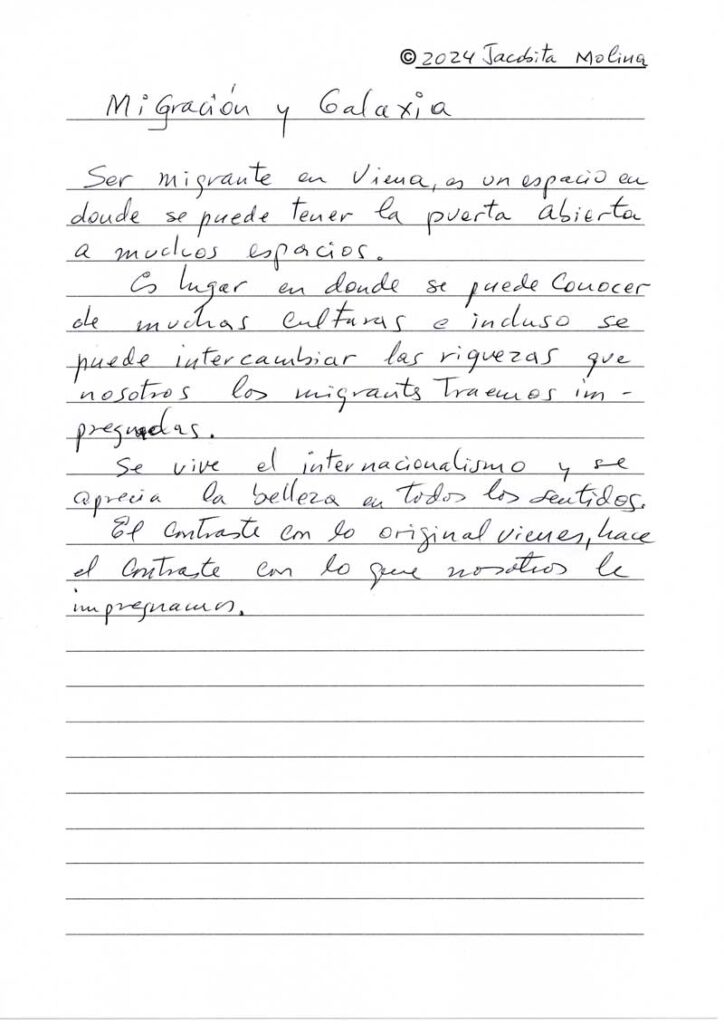 © 2024 Jacobita Molina
Migración y Galaxia
Ser migrante en Viena, es un espacio en
donde se puede tener la puerta abierta
a muchos espacios.
Es lugar en donde se puede Conocer
de muchas culturas e incluso se
puede intercambiar las riquezas que
nosotros los migrants Traemos im-
pregnadas.
Se vive el internacionalismo y se
aprecia la belleza en todos los sentidos.
El Contraste con lo original vienes, hace
el Contraste con lo que nosotros le
impregnamos.